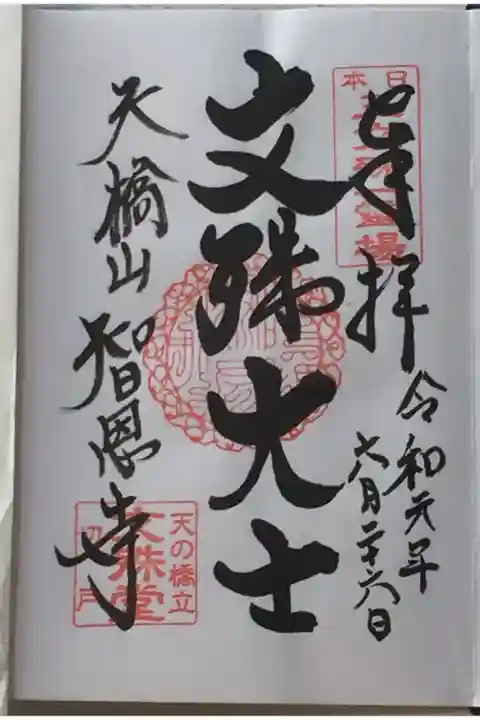 奉拝
令和元年
六月二十六日
文殊大士
天橋山智恩寺
日本
霊場
天の橋立
文殊堂
切戸